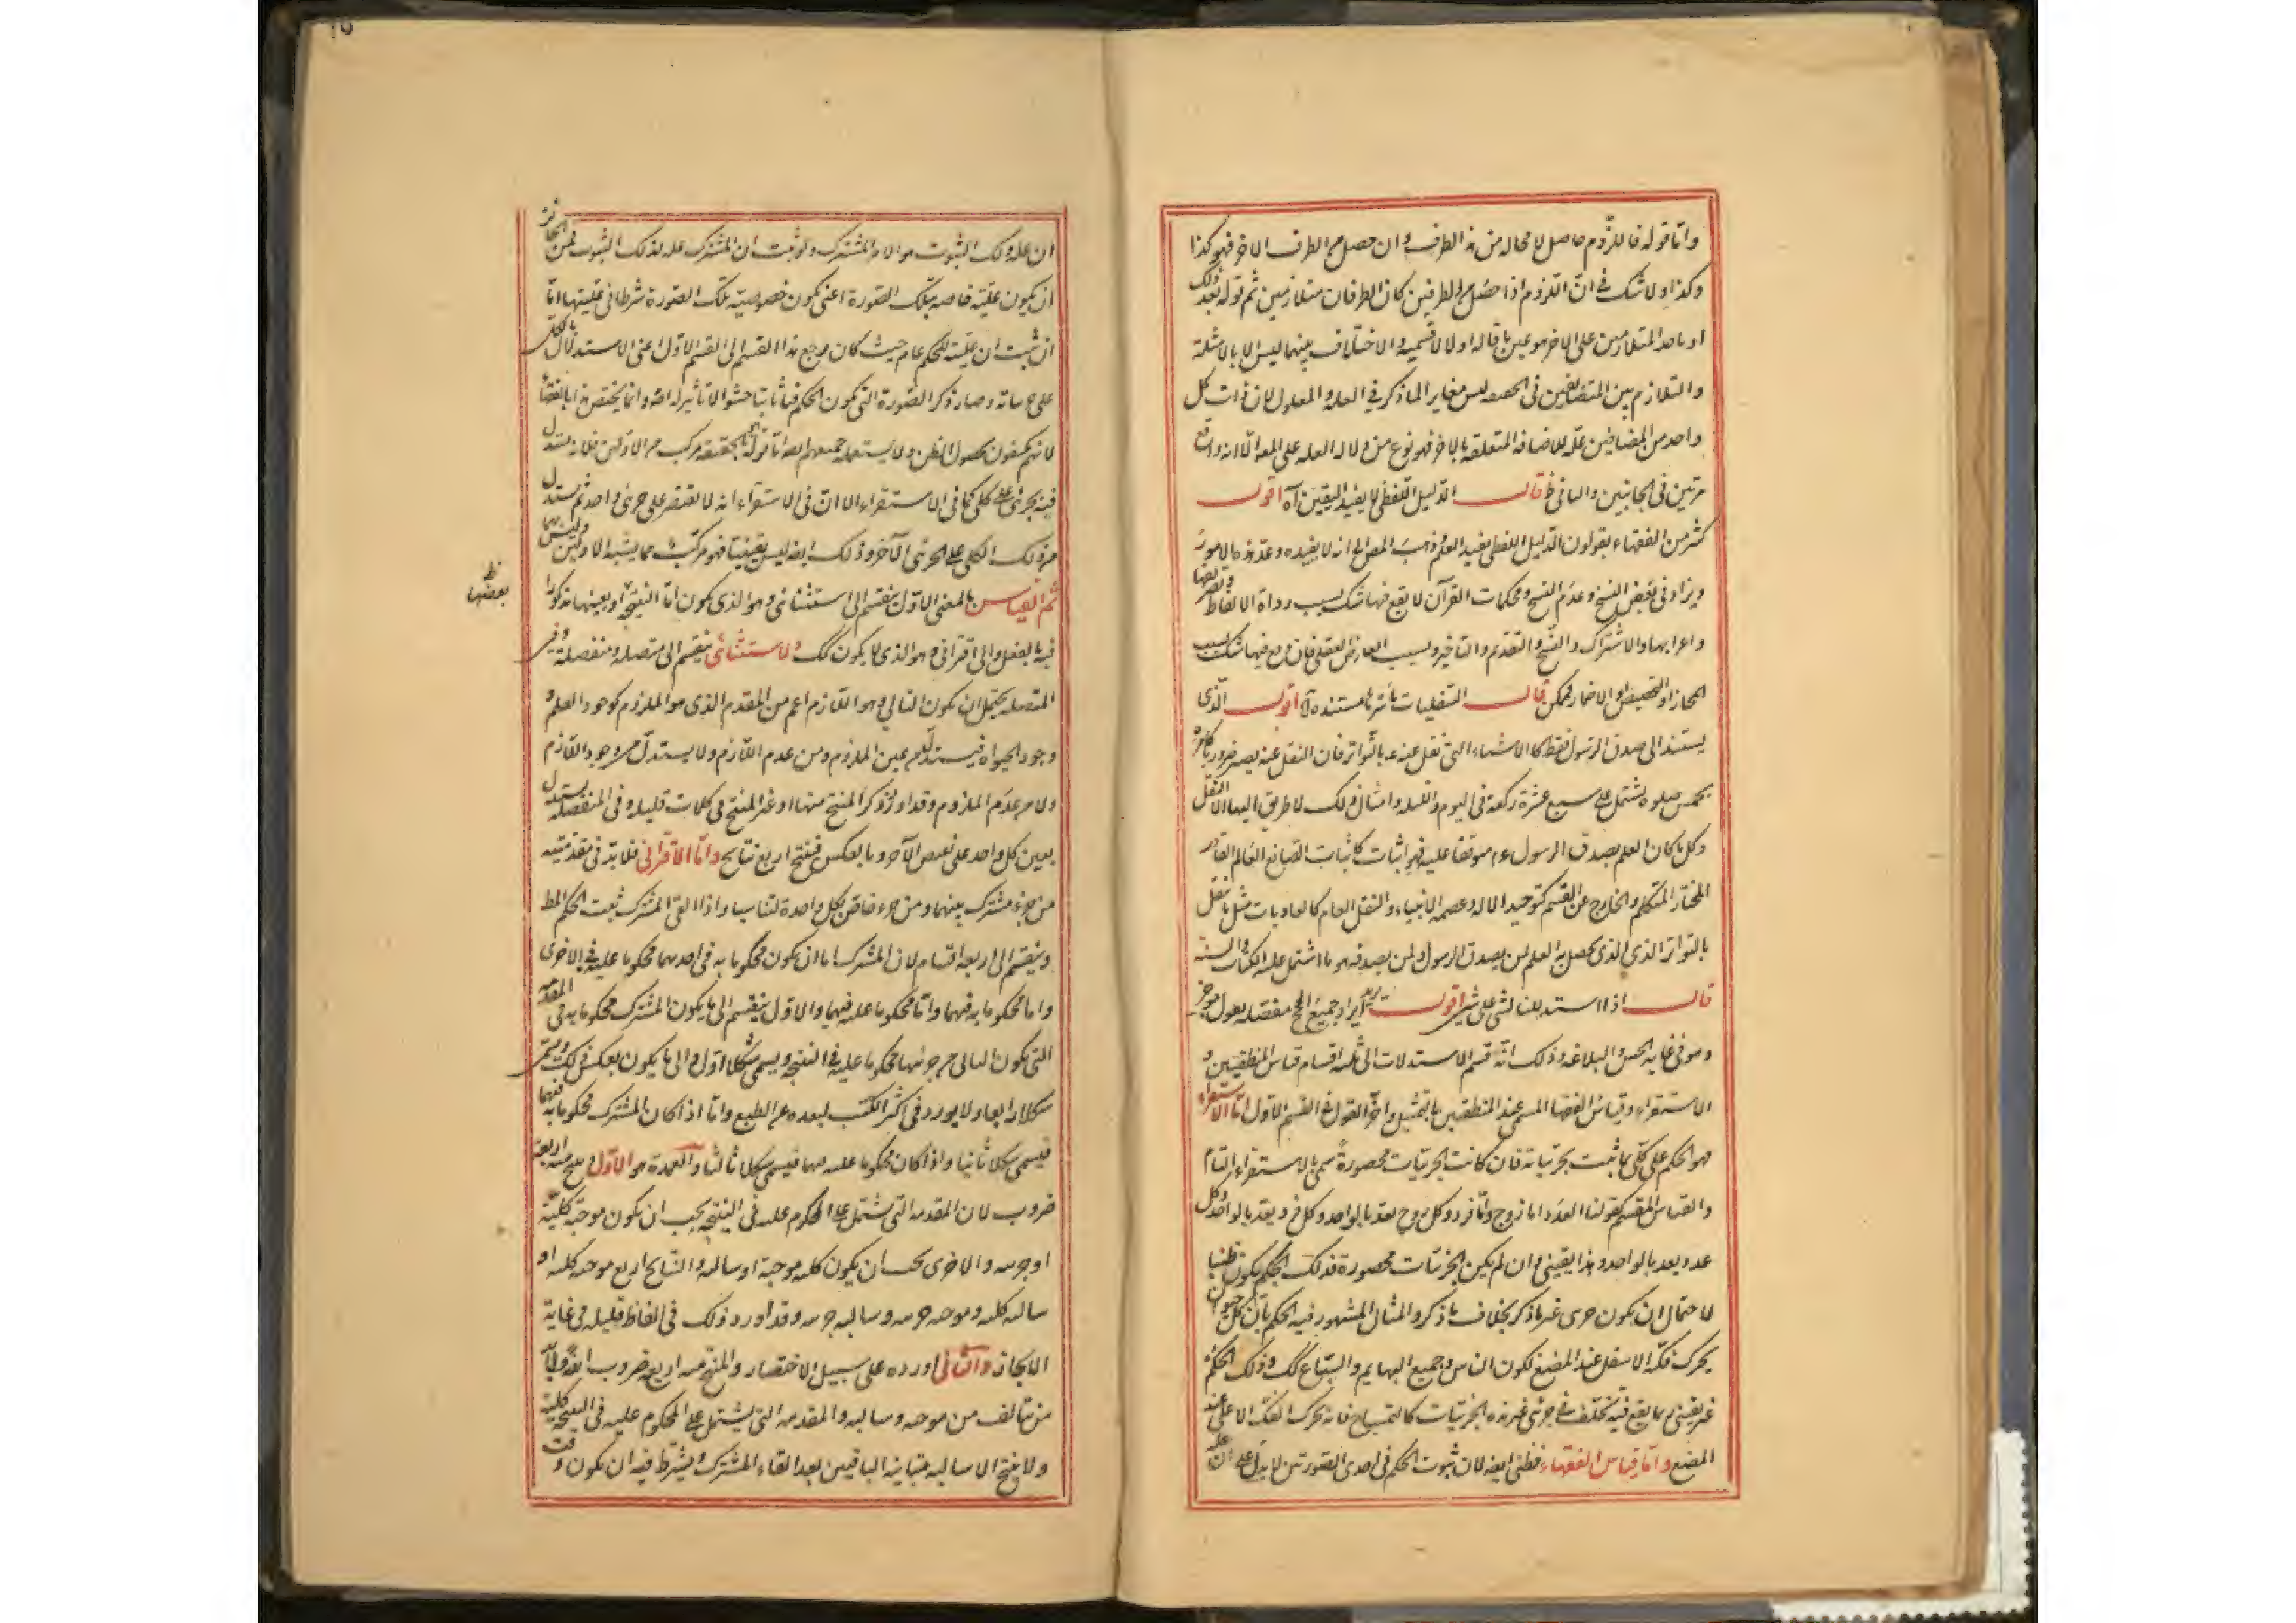 واما قوله فاللزوم حاصل لا محالة من هذا الطرف وان حصل من الطرف الاخر فهو كذا
وكذا ولا شك في ان اللزوم اذا حصل من الطرفين كان الطرفان متلازمين ثم قوله بعد ذلك
او باحد المتلازمين على الاخر هو عين ما قاله اولا لا قسيمه والاختلاف بينهما ليس الا بالامثلة
والتلازم بين المتضايفين في الحقيقة ليس مغايرا لما ذكر في العلة والمعلول لان ذات كل
واحد من المضافين علة للاضافة المتعلقة بالاخر فهو نوع من دلالة العلة على المعلول الا انه واقع
مرتين في الجانبين والباقي ظ قال الدليل اللفظي لا يفيد اليقين آه اقول
كثير من الفقهاء يقولون الدليل اللفظي يفيد العلم وذهب المص الى انه لا يفيده وعد هذه الامور
ويزاد في بعض النسخ وعدم النسخ ومحكمات القرآن لا يقع فيها شك بسبب رواة الالفاظ وتصريفها
واعرابها والاشتراك والنسخ والتقديم والتاخير وبسبب المعارض العقلي فان وقع فيها شك بسبب
المجاز او التخصيص او الاضمار فممكن قال النقليات باسرها مستندة آه اقول الذي
يستند الى صدق الرسول فقط كالاشياء التي نقل عنه بالتواتر فان النقل عنه يصير ضروريا كامره
بخمس صلوة يشتمل على سبع عشرة ركعة في اليوم والليلة وامثال ذلك لا طريق اليها الا النقل
وكل ما كان العلم بصدق الرسول ع م موقوفا عليه فهو اثبات كاثبات الصانع العالم القادر
المختار المتكلم والخارج عن القسم كتوحيد الاله وعصمة الانبياء والنقل العام كالعاديات مثل ما نقل
بالتواتر الذي الذي يحصل به العلم لمن يصدق الرسول ولمن لم يصدقه وما اشتمل عليه الكتاب والسنة
قال اذا استدللنا بشيء على شيء اقول يريد ايراد جميع الحجج مفصلة بقول موجز
وهو في غاية الحسن والبلاغة وذلك انه قسم الاستدلالات الى ثلثة اقسام قياس المنطقيين و
الاستقراء وقياس الفقهاء المسمى عند المنطقيين بالتمثيل واخر القول في القسم الاول اما الاستقراء
فهو الحكم على كلي بما ثبت بجزئياته فان كانت الجزئيات محصورة سمي بالاستقراء التام
والقياس المقسم كقولنا العدد اما زوج واما فرد وكل زوج يعد بالواحد وكل فرد يعد بالواحد وكل
عدد يعد بالواحد وهذا يقيني وان لم يكن الجزئيات محصورة فذلك الحكم يكون ظنيا
لاحتمال ان يكون جزئي غير ما ذكر بخلاف ما ذكر والمثال المشهور فيه الحكم بان كل حيوان
يحرك فكه الاسفل عند المضغ لكون الناس وجميع البهايم والسباع كك وذلك الحكم
غير يقيني ربما يقع فيه تخلف في جزئي غير هذه الجزئيات كالتمساح فانه يحرك الفك الاعلى عند
المضغ واما قياس الفقهاء فظني ايضه لان ثبوت الحكم في احدى الصورتين لا يدل على ان علة
ان علة ذلك الثبوت هو الامر المشترك ولو ثبت ان المشترك علة لذلك الثبوت فمن الجائز
ان يكون عليته خاصة بتلك الصورة اعني يكون خصوصية تلك الصورة شرطا في عليتها اما
ان ثبت ان عليته للحكم عام حيث كان رجع هذا القسم الى القسم الاول اعني الاستدلال بالكلي
على جزئياته وصار ذكر الصورة التي يكون الحكم فيها ثابتا حشوا لا تاثير له اصلا وانما يختص هذا بالفقهاء
لانهم يكتفون بحصول الظن ولا يستعمله جميعهم ايضه اما قوله بالحقيقة مركب من الاولين فلانه يستدل
فيه بجزئي على كلي كما في الاستقراء الا ان في الاستقراء انه لا يقتصر على جزئي واحد ثم يستدل
من ذلك الكلي على الجزئي الآخر وذلك ايضه ليس يقينيا فهو مركب مما يشبه الاولين وليس بهما
ثم القياس بالمعنى الاول ينقسم الى استثنائي وهو الذي يكون اما النتيجة او نقيضها مذكورا
بعضها ظ
فيه بالفعل والى اقتراني وهو الذي لا يكون كك والاستثنائي ينقسم الى متصلة ومنفصلة وفي
المتصلة يحتمل ان يكون التالي وهو اللازم اعم من المقدم الذي هو الملزوم كوجود العلم و
وجود الحيوة فيستدل من عين الملزوم ومن عدم اللازم ولا يستدل من وجود اللازم
ولا من عدم الملزوم وقد اورد ذكر المنتج منها او غير المنتج في كلمات قليلة وفي المنفصلة يستدل
بعين كل واحد على نقيض الآخر وبالعكس فينتج اربع نتايج واما الاقتراني فلا بد في مقدمتيه
من جزء مشترك بينهما ومن جزء خاص بكل واحدة لتناسبا واذا القي المشترك ثبت الحكم المط
وينقسم الى اربعة اقسام لان المشترك اما ان يكون محكوما به في احديهما محكوما عليه في الاخرى
واما محكوما به فيهما واما محكوما عليه فيهما والاول ينقسم الى ما يكون المشترك محكوما به في المقدمة
التي يكون الباقي من جزئيها محكوما عليه في النتيجة ويسمى شكلا اول والى ما يكون بعكس ذلك ويسمى
شكلا رابعا ولا يورد في اكثر الكتب لبعده عن الطبع واما اذا كان المشترك محكوما به فيهما
فيسمى شكلا ثانيا واذا كان محكوما عليه فيهما فيسمى شكلا ثالثا والعمدة هو الاول وينتج منه اربعة
ضروب لان المقدمة التي يشتمل على المحكوم عليه في النتيجة يجب ان يكون موجبة كلية
او جزئية والاخرى يجب ان يكون كلية موجبة او سالبة والنتايج اربع موجبة كلية او
سالبة كلية وموجبة جزئية وسالبة جزئية وقد اورد ذلك في الفاظ قليلة في غاية
الايجاز والثاني اورده على سبيل الاختصار والمنتج منه اربعة ضروب ايضه ولا بد
من تتالف من موجبة وسالبة والمقدمة التي يشتمل على المحكوم عليه في النتيجة كلية
ولا ينتج الا سالبة مباينة الباقيين بعد القاء المشترك ويشترط فيه ان يكون وقت